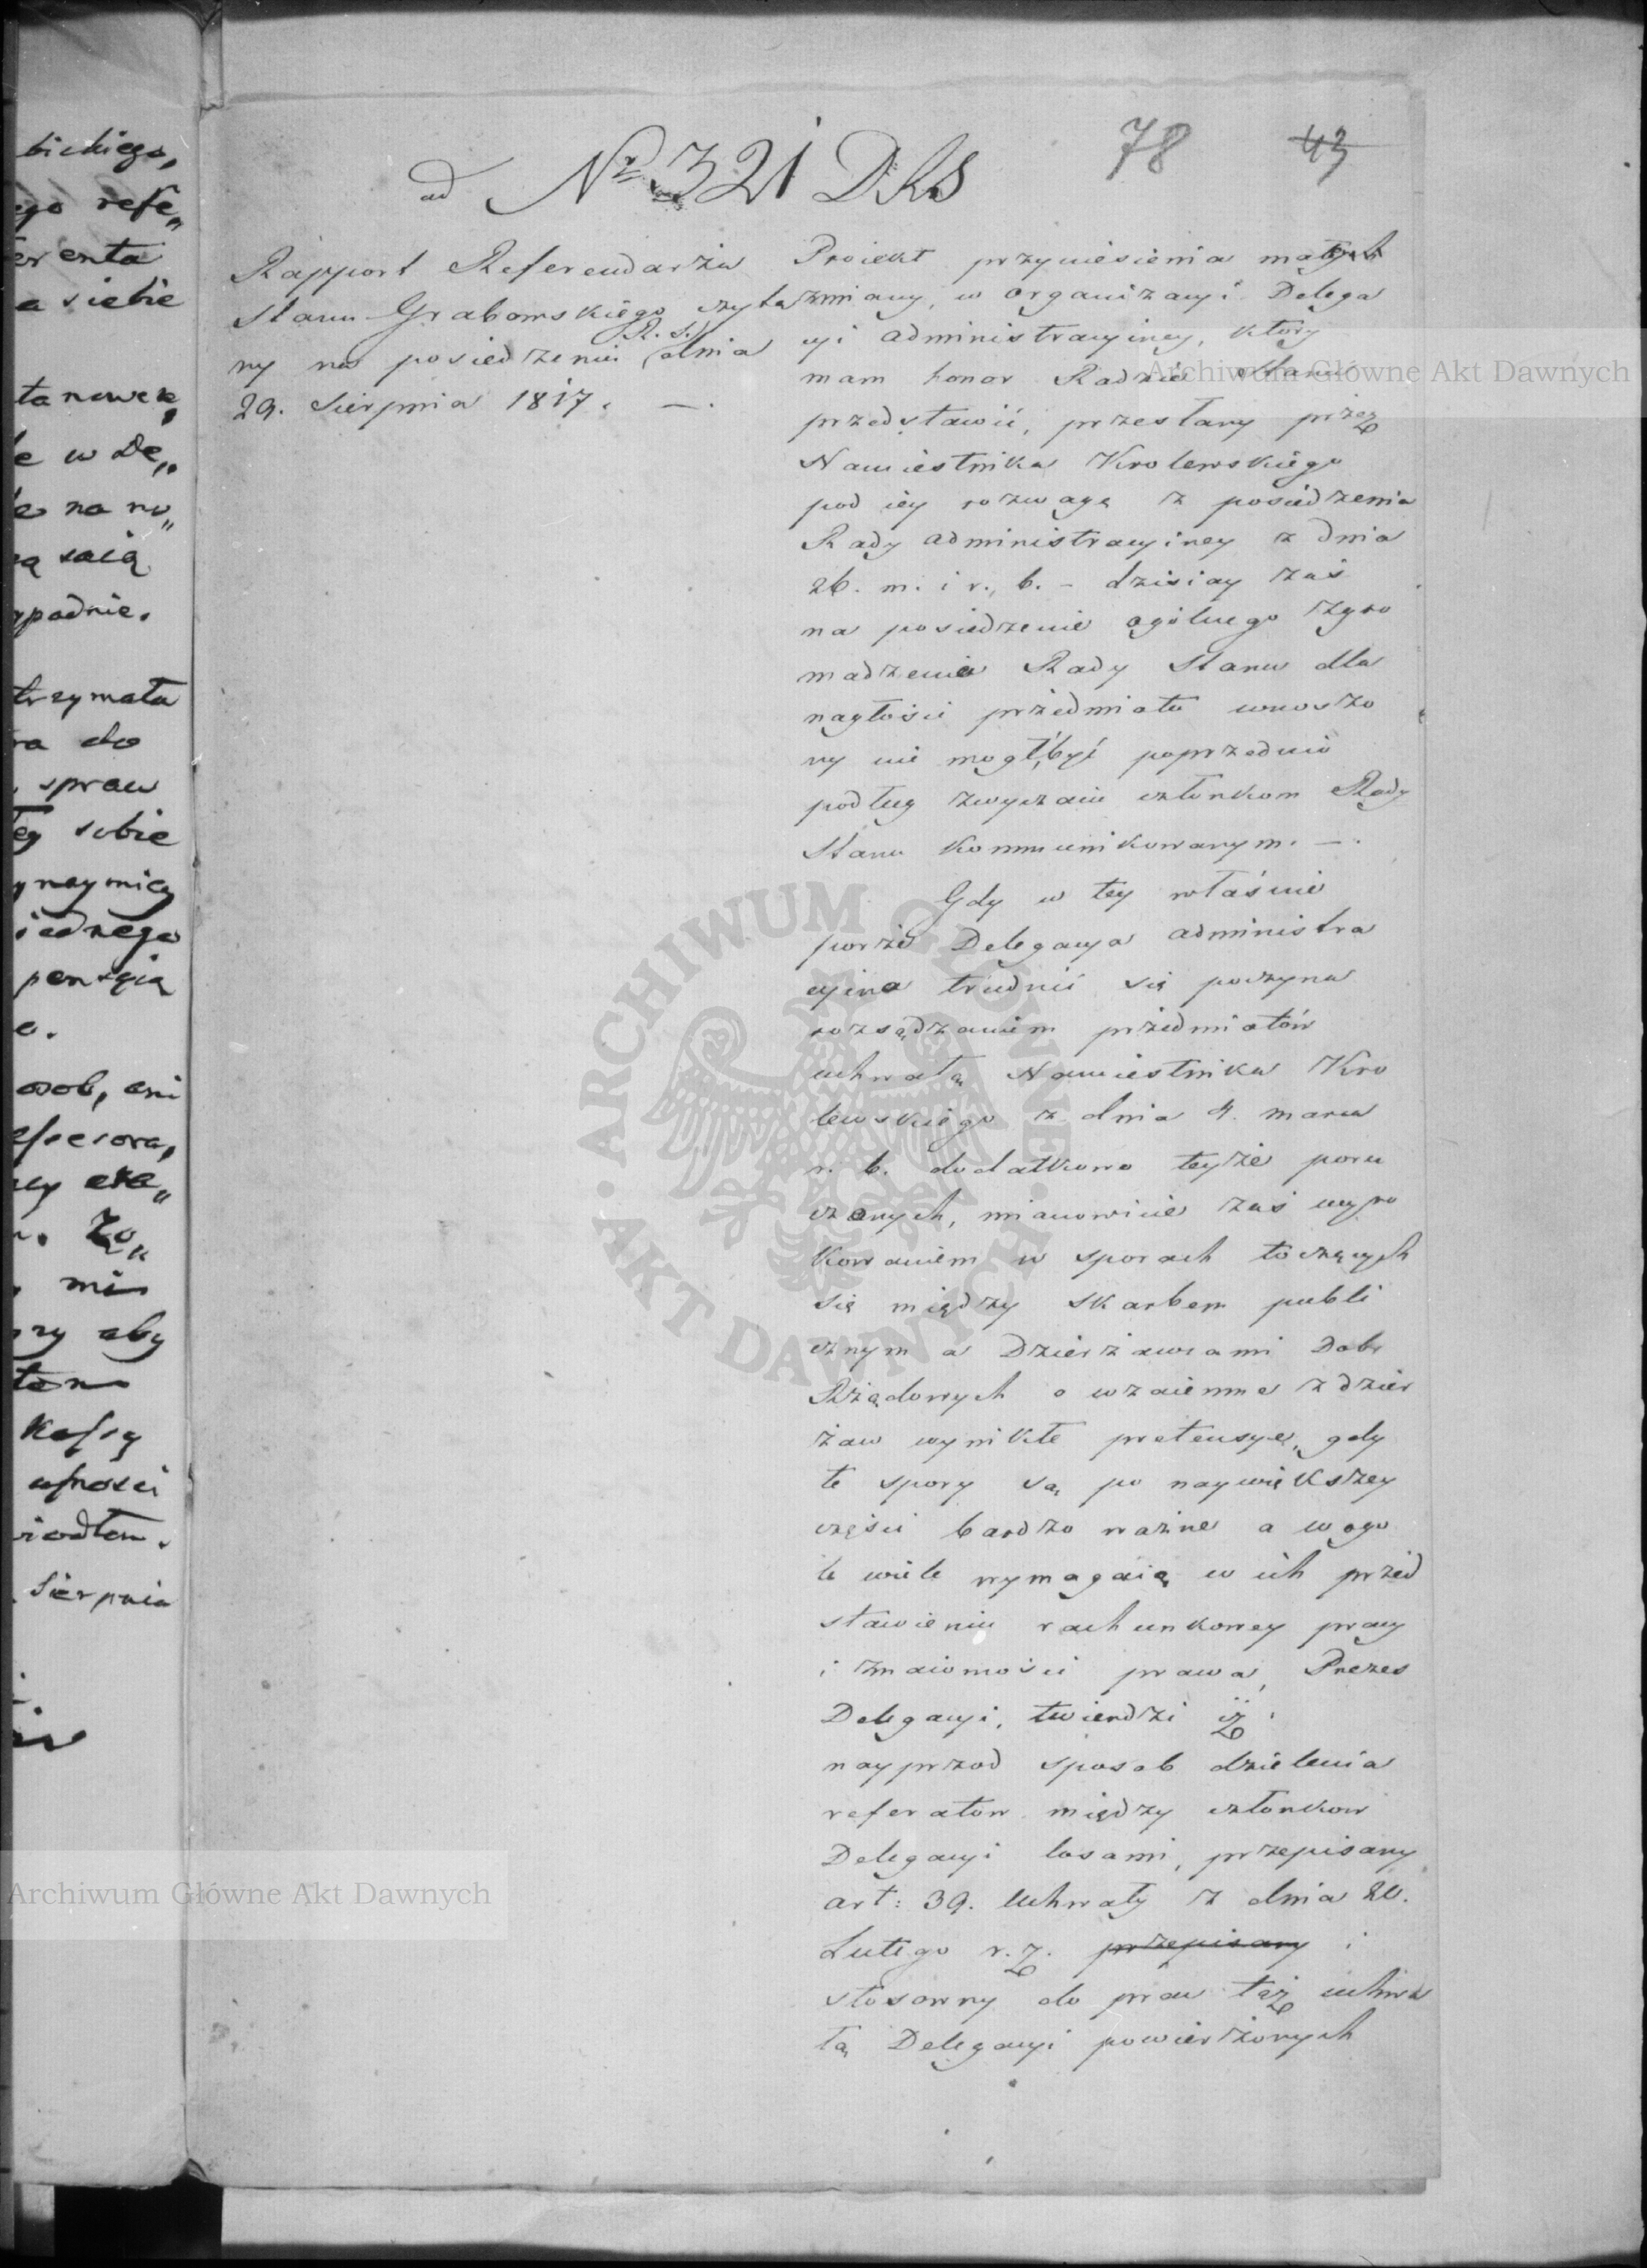 bickiego,
ego refe„
ferenta
a siebie
tanowek,
le w De„
le na ru„
ypadnie.
trzymała
ra do
, spraw
tey sobie
y naymiey
iednego
pensyią
e.
osob, ani
efsesora,
mi
rzy aby
Kafsy
ufności
. Sierpnia
ad Nr 321 DRS
78 43
Rapport Referendarza
Stanu Grabowskiego czyta
ny na posiedzeniu (R. S.) dnia
29. Sierpnia 1817. —.
Proiekt przyniesienia małych
zmiany, w organizacyi Delega
cyi administracyiney, który
mam honor Radzie Stanu
przedstawić, przesłany przez
Namiestnika Krolewskiego
pod iey rozwagę z posiedzenia
Rady administracyiney z dnia
26. m. i r. b. – dzisiay zaś
na posiedzenie ogólnego zgro
madzenia Rady Stanu dla
nagłości przedmiotu wnoszo
ny nie mógł być poprzednio
podług zwyczaiu członkom Rady
Stanu kommunikowanym. —.
Gdy w tey właśnie
porze Delegacya administra
cyina trudnić się poczyna
rozsądzaniem przedmiotów
uchwałą Namiestnika Kro
lewskiego z dnia 4. marca
r. b. dodatkowo teyże poru
czonych, mianowicie zaś wyro
kowaniem w sporach toczących
się między Skarbem publi
cznym a Dzierżawcami Dobr
Rządowych o wzaiemne z dzier
żaw wynikłe pretensye, gdy
te spory są po naywiększey
części bardzo ważne a w ogo
le wiele wymagaią w ich przed
stawieniu rachunkowey pracy
i znaiomości prawa, Prezes
Delegacyi, twierdzi iż:
nayprzod sposob dzielenia
referatow między członkow
Delegacyi losami, przepisany
art: 39. Uchwały z dnia 20.
Lutego r. z. przepisany i
stosowny do praw tąż uchwa
łą Delegacyi powierzonych
Archiwum Główne Akt Dawnych
Archiwum Główne Akt Dawnych
ARCHIWUM GŁÓWNE · AKT DAWNYCH ·